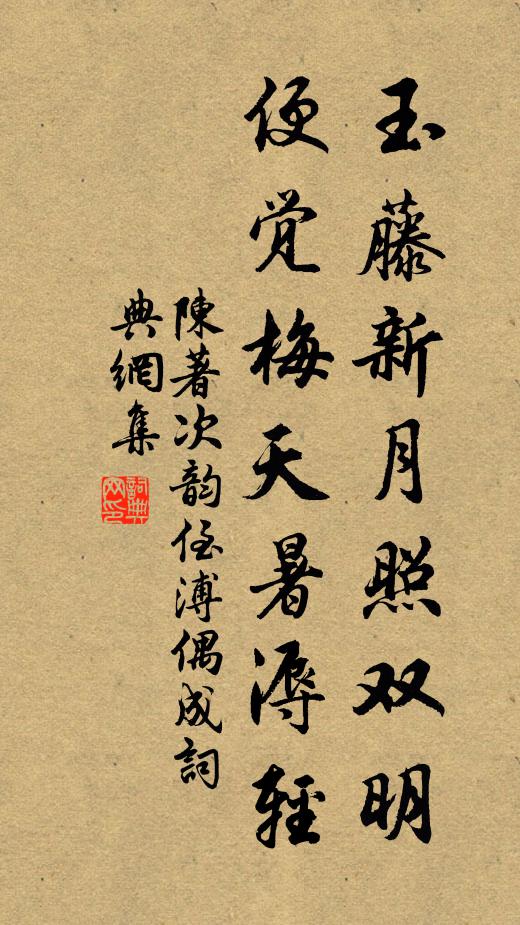 玉藤新月照双明
便觉梅天暑溽轻
陳著次韵侄溥偶成詞
典網集
詞典網印